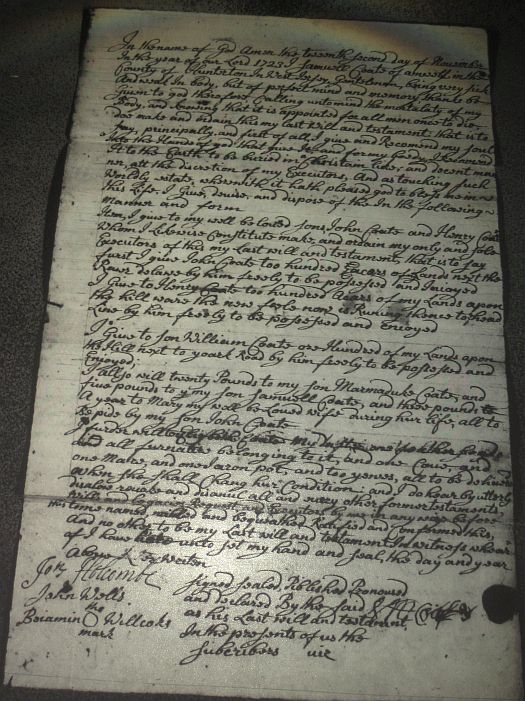 In the name of God Amen the twenth second day of November
In the year of our Lord 1723 I Samuell Coate of amwell in the
County of Hunterton In West Jersy Gentelman, being very sick
And weak In body, but of perfect mind and memory thanks be
Given to god therefore Calling unto mind the mortalat of my
Body, and knowing that it is appointed for all men once to dye
doe make and ordain this my last will and testament: that is to
say, principally, and first of all, I give and Recomend my soul
into the Hands of god that give it, and for my body I Recomend
It to the Earth, to be buried in a Christian like, and decent man
ner, att the discretion of my Executors, And as touching such
Worldly estate, wherewith it hath pleased god to bless me in
this life, I Give, devise, and dispose of the In the following
Manner and form.
Item, I give to my well beloved sons John Coate and Henry Coate
Whom I Likewise Constitute make, and ordain my only and sole
Executors of this my last will and testament, that is to say
furst I give John Coate too hundred Eacers of Lands next the
River delave by him freely to be possessed and Inioyed
I Give to Henry Coate too hundred Acars of my Lands apon
the hill ware the new is Runing thence to head
Line by him freely to be possessed and Enioyed
I Give to Son William Coate one Hundred of my Lands apon
the Hill next to yoark Road by him freely to be possesed and
Enjoyed;
allso will twenty Pounds to my son Marmaduke Coate, and
five pounds to my son Samuell Coate, and three pounds
A year to Mary my well be Loved wife during hur life, all to
Be pide by my son John Coate
I furder will
and all furnater belonging to it, and one Cow, and
one Mare, and one aron pot, and too yewes, all to be
When she shall Chang hur Condition, and I do hearby utterly
disalow revoke and disanul all and every other former testaments
wills and and Executors by me any ways before
this time named willed and bequathed Ratified and Comformed this
And no other to be my Last will and testament In witness whear
of I have unto set my hand and seal the day and year
Above Writen
Holcombe
John Wells
the
Beiamin Willcoks
mark
signed sealed Publshed Pronoured
and declared By the said
as his Last will and testament,
In the presents of us the
subcribers viz